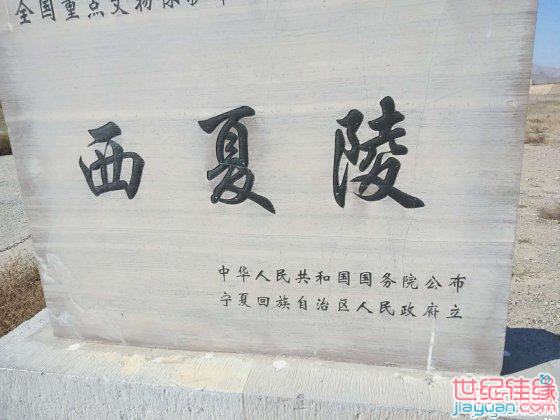 全国重点文物保护单
西夏陵
中华人民共和国国务院公布
宁夏回族自治区人民政府立
世纪佳缘
jiayuan.com